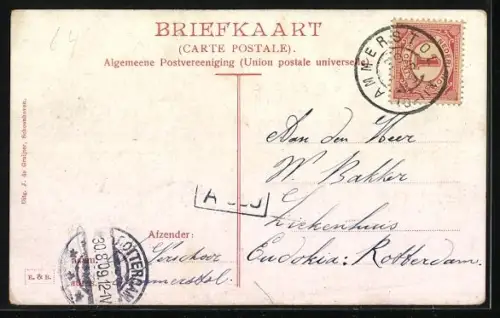 64
BRIEFKAART
(CARTE POSTALE).
Algemeene Postvereeniging (Union postale universelle)
AMMERSTOL
NEDERLAND
1
Aan den Heer
W. Bakker
Ziekenhuis
Eudokia: Rotterdam.
Afzender:
Verschoor
Ammerstol
ROTTERDAM
30.8.09.12-1V
Uitg. J. de Gruijter, Schoonhoven.
E. & B.